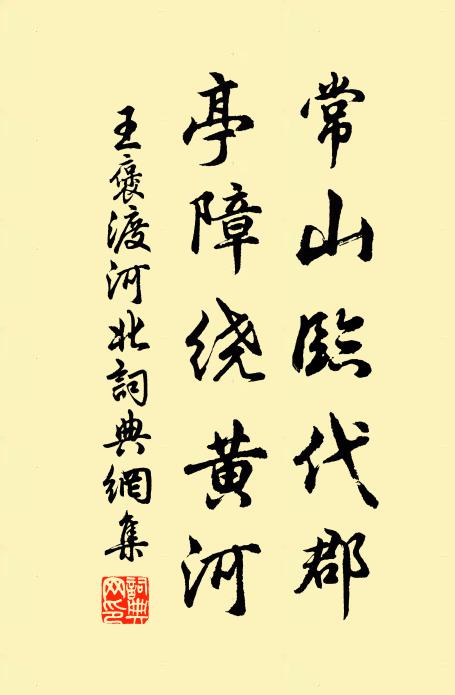 常山臨代郡
亭障绕黄河
王褒渡河北詞典網集
詞典網印